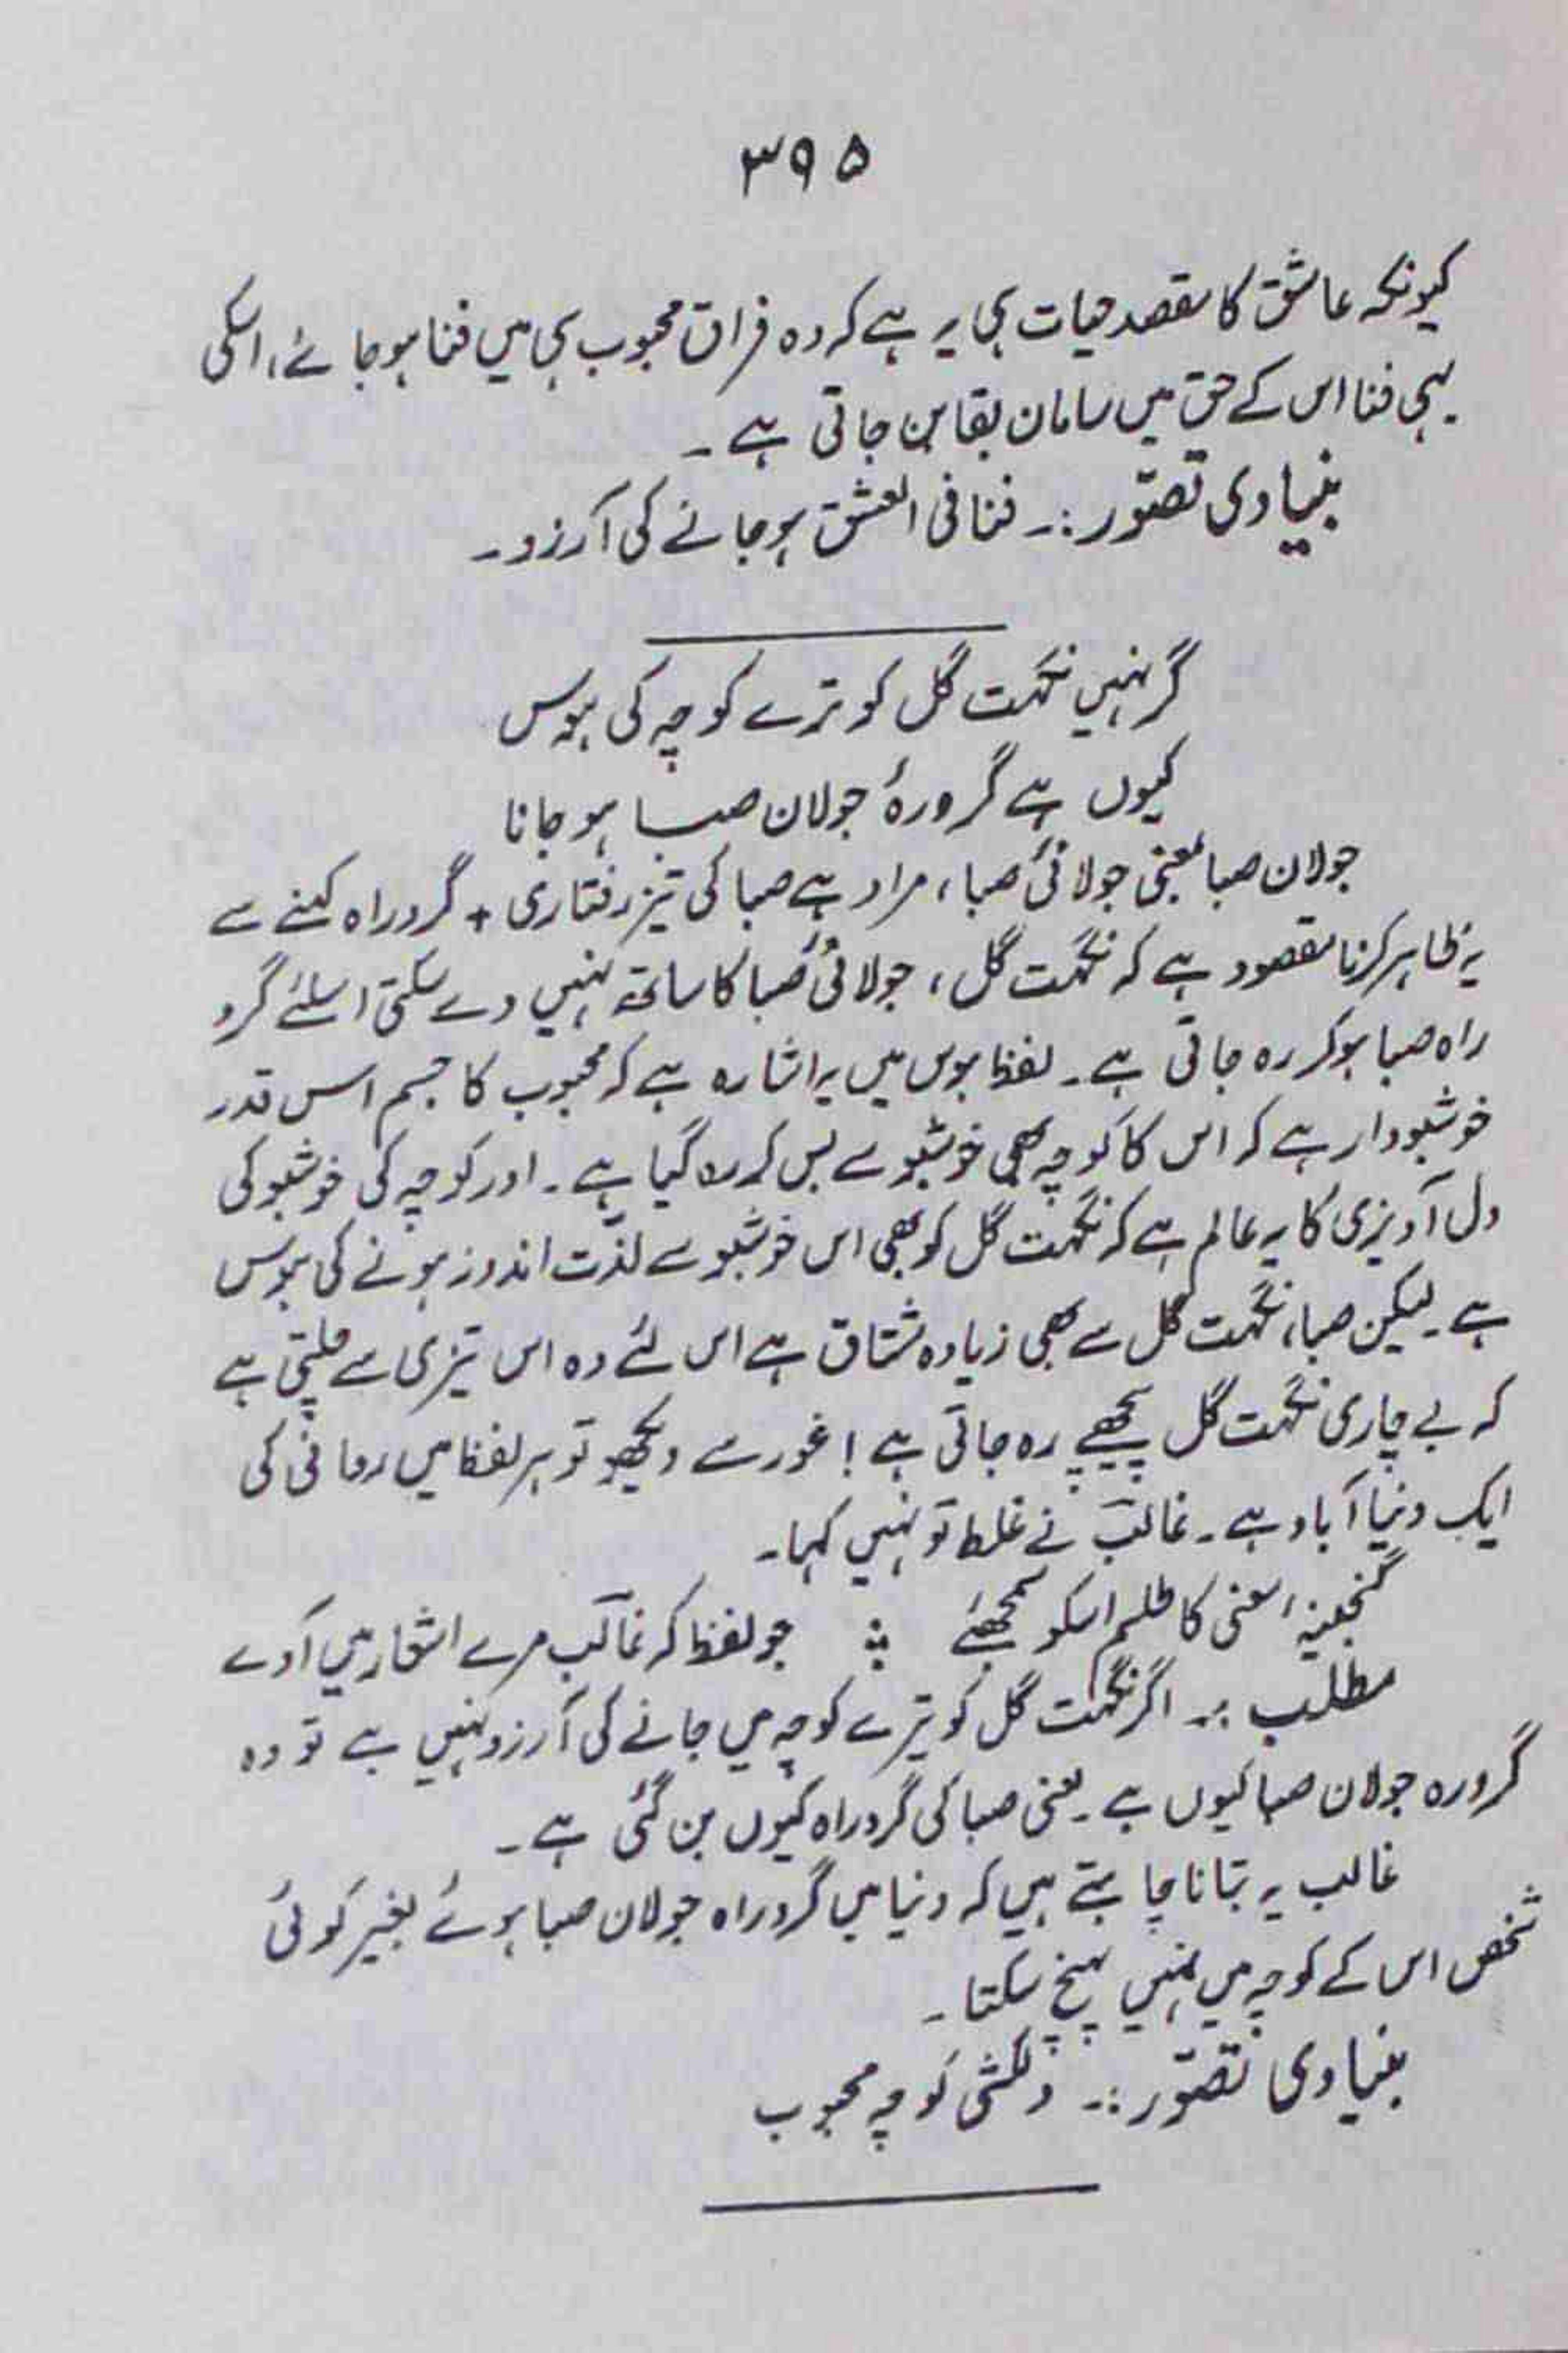 ۳۹۵
کیونکہ عاشق کا مقصد حیات ہی یہ ہے کہ وہ فراق محبوب ہی میں فنا ہوجائے، اسکی
یہی فنا اس کے حق میں سامان بقا بن جاتی ہے ۔
بنیادی تصوّر :۔ فنا فی العشق ہوجانے کی آرزو ۔
گر نہیں نکہت گل کو ترے کوچہ کی ہوس
کیوں ہے گردِ رہٗ جولان صبا ہو جانا
جولان صبا بمعنی جولانیٔ صبا ، مراد ہے صبا کی تیز رفتاری + گرد راہ کہنے سے
یہ ظاہر کرنا مقصود ہے کہ نکہت گل ، جولانیٔ صبا کا ساتھ نہیں دے سکتی اسلئے گرد
راہ صبا ہو کر رہ جاتی ہے ۔ لفظ ہوس میں یہ اشارہ ہے کہ محبوب کا جسم اس قدر
خوشبودار ہے کہ اس کا کوچہ بھی خوشبو سے بس کر رہ گیا ہے ۔ اور کوچہ کی خوشبو کی
دل آویزی کا یہ عالم ہے کہ نکہت گل کو بھی اس خوشبو سے لذّت اندوز ہونے کی ہوس
ہے ۔ لیکن صبا، نکہت گل سے بھی زیادہ مشتاق ہے اس لئے وہ اس تیزی سے چلتی ہے
کہ بے چاری نکہت گل پیچھے رہ جاتی ہے ! غور سے دیکھو تو ہر لفظ میں معانی کی
ایک دنیا آباد ہے ۔ غالبؔ نے غلط تو نہیں کہا ۔
گنجینۂ معنی کا طلسم اسکو سمجھئے ؛ جو لفظ کہ غالبؔ مرے اشعار میں آوے
مطلب :۔ اگر نکہت گل کو تیرے کوچہ میں جانے کی آرزو نہیں ہے تو وہ
گرد رہ جولان صبا کیوں ہے ۔ یعنی صبا کی گرد راہ کیوں بن گئی ہے ۔
غالب یہ بتانا چاہتے ہیں کہ دنیا میں گرد راہ جولان صبا ہوئے بغیر کوئی
شخص اس کے کوچہ میں نہیں پہنچ سکتا ۔
بنیادی تصوّر :۔ دلکشی کوچہ محبوب